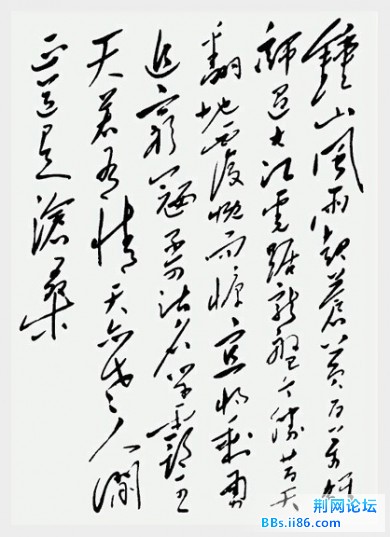 鍾山風雨起蒼黄百万雄
師過大江虎踞龍盤今勝昔天
翻地覆慨而慷宜将剩勇
追窮寇不可沽名学霸王
天若有情天亦老人間
正道是滄桑
荆网论坛
BBs.ii86.com